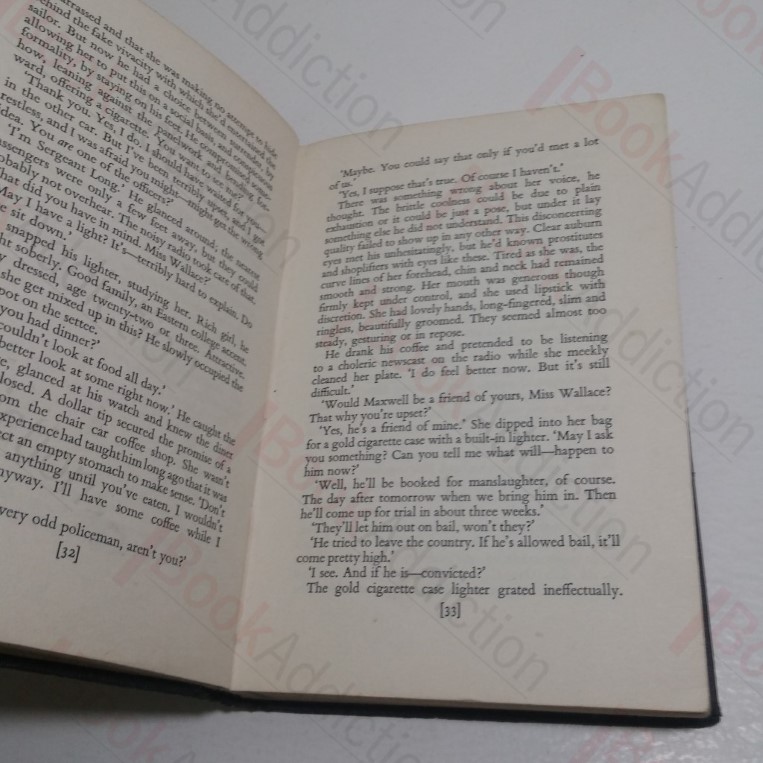 arrassed and that she was making no attempt to hide
behind the fake vivacity with which she'd entertained the
sailor. But now he had a choice between surrender, by
allowing her to put this on a social basis, and conspicuous
formality, by staying on his feet. He compromised some-
how, leaning against the panelwork and bending for-
ward, offering a cigarette. 'You want to see me?'
'Thank you. Yes, I do. I should have waited for you
in the other car. But I've been terribly upset, and I got
restless, and I was afraid you might—might get the wrong
idea. You are one of the officers?'
'I'm Sergeant Long.' He glanced around; the nearest
passengers were only a few feet away, but they could
probably not overhear. The noisy radio took care of that.
'What did you have in mind, Miss Wallace?'
'May I have a light? It's—terribly hard to explain. Do
sit down.'
snapped his lighter, studying her. Rich girl, he
ght soberly. Good family, an Eastern college accent,
y dressed, age twenty-two or three. Attractive.
she get mixed up in this? He slowly occupied the
pot on the settee.
you had dinner?'
couldn't look at food all day.'
better look at some right now.' He caught the
e, glanced at his watch and knew the diner
losed. A dollar tip secured the promise of a
om the chair car coffee shop. She wasn't
xperience had taught him long ago that it was
ect an empty stomach to make sense. 'Don't
anything until you've eaten. I wouldn't
nyway. I'll have some coffee while I
very odd policeman, aren't you?'
[32]
'Maybe. You could say that only if you'd met a lot
of us.'
'Yes, I suppose that's true. Of course I haven't.'
There was something wrong about her voice, he
thought. The brittle coolness could be due to plain
exhaustion or it could be just a pose, but under it lay
something else he did not understand. This disconcerting
quality failed to show up in any other way. Clear auburn
eyes met his unhesitatingly, but he'd known prostitutes
and shoplifters with eyes like these. Tired as she was, the
curve lines of her forehead, chin and neck had remained
smooth and strong. Her mouth was generous though
firmly kept under control, and she used lipstick with
discretion. She had lovely hands, long-fingered, slim and
ringless, beautifully groomed. They seemed almost too
steady, gesturing or in repose.
He drank his coffee and pretended to be listening
to a choleric newscast on the radio while she meekly
cleaned her plate. 'I do feel better now. But it's still
difficult.'
'Would Maxwell be a friend of yours, Miss Wallace?
That why you're upset?'
'Yes, he's a friend of mine.' She dipped into her bag
for a gold cigarette case with a built-in lighter. 'May I ask
you something? Can you tell me what will—happen to
him now?'
'Well, he'll be booked for manslaughter, of course.
The day after tomorrow when we bring him in. Then
he'll come up for trial in about three weeks.'
'They'll let him out on bail, won't they?'
'He tried to leave the country. If he's allowed bail, it'll
come pretty high.'
'I see. And if he is—convicted?'
The gold cigarette case lighter grated ineffectually.
[33]
BookAddiction